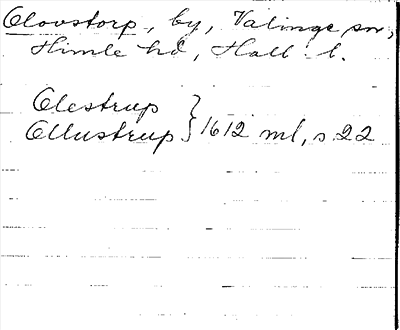 Olovstorp, by, Valinge sn,
Himle hd, Hall. l.
Olestrup
Ollustrup } 1612 ml, s. 22